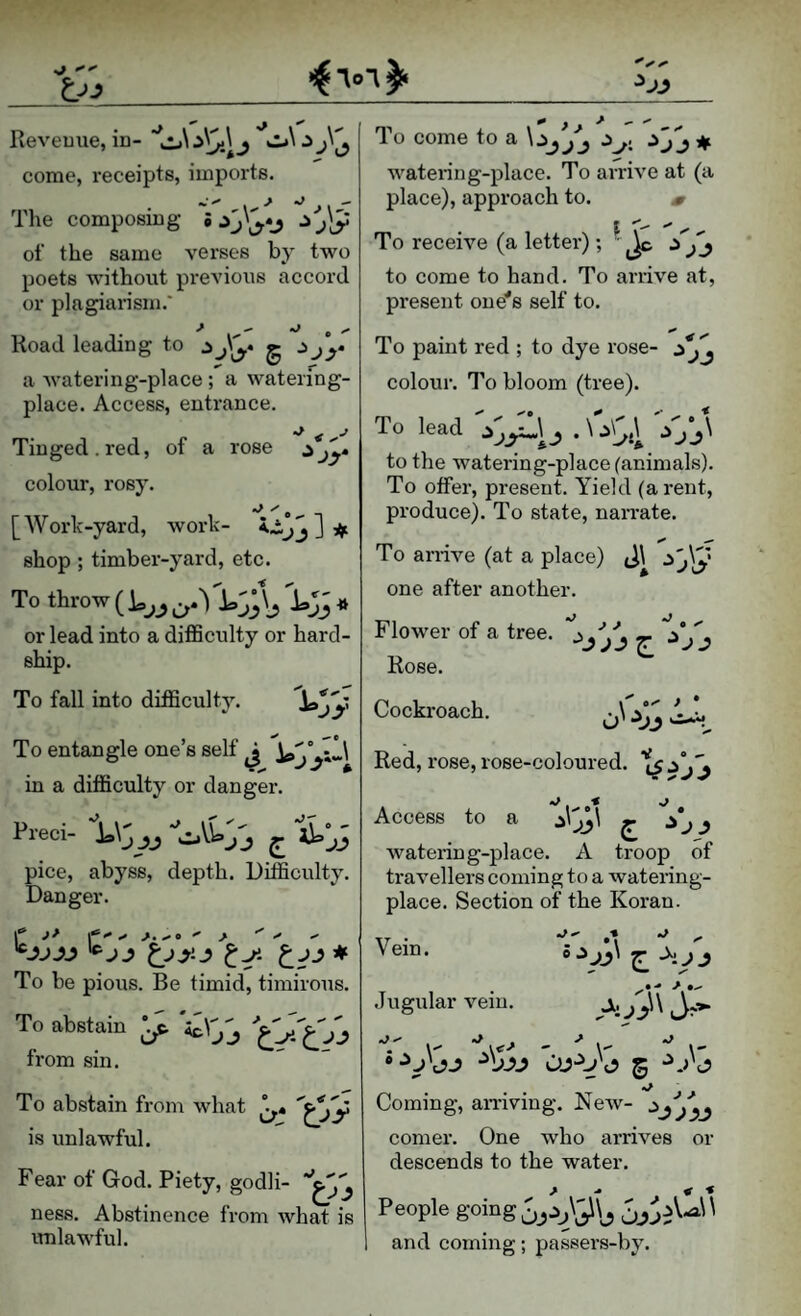 وَرَدَ ﴿٦٥٦﴾ وَرَعٌ
To come to a وَرَدَ يَرِدُ وُرُودًا *
watering-place. To arrive at (a
place), approach to.
To receive (a letter); وَرَدَ عَلَى
to come to hand. To arrive at,
present one's self to.
To paint red ; to dye rose- وَرَّدَ
colour. To bloom (tree).
To lead أَوْرَدَ إِيرَادًا . وَإِسْتَوْرَدَ
to the watering-place (animals).
To offer, present. Yield (a rent,
produce). To state, narrate.
To arrive (at a place) تَوَارَدَ إِلَى
one after another.
Flower of a tree. وَرْدٌ ج وُرُودٌ
Rose.
Cockroach. بِنْتُ وَرْدَانَ
Red, rose, rose-coloured. وَرْدِيٌّ
Access to a وِرْدٌ ج أَوْرَادٌ
watering-place. A troop of
travellers coming to a watering-
place. Section of the Koran.
Vein. وَرِيدٌ ج أَوْرِدَةٌ
Jugular vein. حَبْلُ الْوَرِيدِ
وَارِدٌ ج وَارِدُونَ وُرَّادٌ وَوَارِدَةٌ
Coming, arriving. New- وُرُودٌ
comer. One who arrives or
descends to the water.
People going الصَّادِرُونَ وَالْوَارِدُونَ
and coming; passers-by.
Revenue, in- وَارِدَاتٌ وَإِيرَادَاتٌ
come, receipts, imports.
The composing تَوَارُدٌ وَمُوَارَدَةٌ
of the same verses by two
poets without previous accord
or plagiarism.
Road leading to مَوْرِدٌ ج مَوَارِدُ
a watering-place; a watering-
place. Access, entrance.
Tinged red, of a rose مُوَرَّدٌ
colour, rosy.
[Work-yard, work- وَرْشَةٌ ] *
shop ; timber-yard, etc.
To throw (وَرَّطَ وَأَوْرَطَ (مِن وَرط *
or lead into a difficulty or hard-
ship.
To fall into difficulty. تَوَرَّطَ
To entangle one's self إِسْتَوْرَطَ فِي
in a difficulty or danger.
Preci- وَرْطَةٌ ج وَرَطَاتٌ وَوِرَاطٌ
pice, abyss, depth. Difficulty.
Danger.
وَرِعَ يَرِعُ وَيَوْرَعُ وَرَعًا وَوُرُوعًا *
To be pious. Be timid, timirous.
To abstain وَرَعَ يَرَعُ وَرَاعَةً عَنْ
from sin.
To abstain from what تَوَرَّعَ مِنْ
is unlawful.
Fear of God. Piety, godli- وَرَعٌ
ness. Abstinence from what is
unlawful.